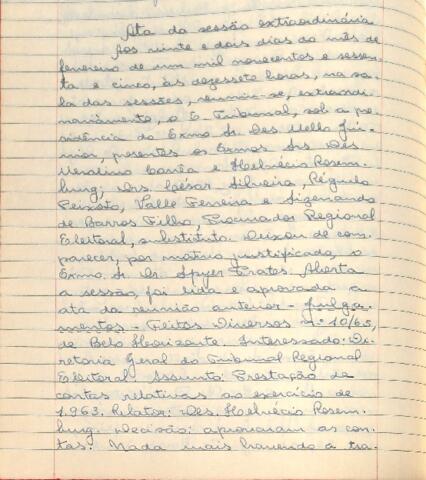 Ata da sessão extraordinária
Aos vinte e dois dias do mês de
fevereiro de um mil novecentos e sessen-
ta e cinco, às dezessete horas, na sa-
la das sessões, reuniu-se, extraordi-
nariamente, o E. Tribunal, sob a pre-
sidência do Exmo. Sr. Des. Mello Jú-
nior, presentes os Exmos. Srs. Des.
Merolino Corrêa e Helvécio Rosem-
burg; Drs. César Silveira, Régulo
Peixoto, Valle Ferreira e Sizenando
de Barros Filho, Procurador Regional
Eleitoral, substituto. Deixou de com-
parecer, por motivo justificado, o
Exmo. Sr. Dr. Spyer Prates. Aberta
a sessão, foi lida e aprovada a
ata da reunião anterior - Julga-
mentos - Feitos Diversos nº 10/65,
de Belo Horizonte. Interessado: Di-
retoria Geral do Tribunal Regional
Eleitoral. Assunto: Prestação de
contas relativas ao exercício de
1.963. Relator: Des. Helvécio Rosem-
burg. Decisão: aprovaram as con-
tas. Nada mais havendo a tra-